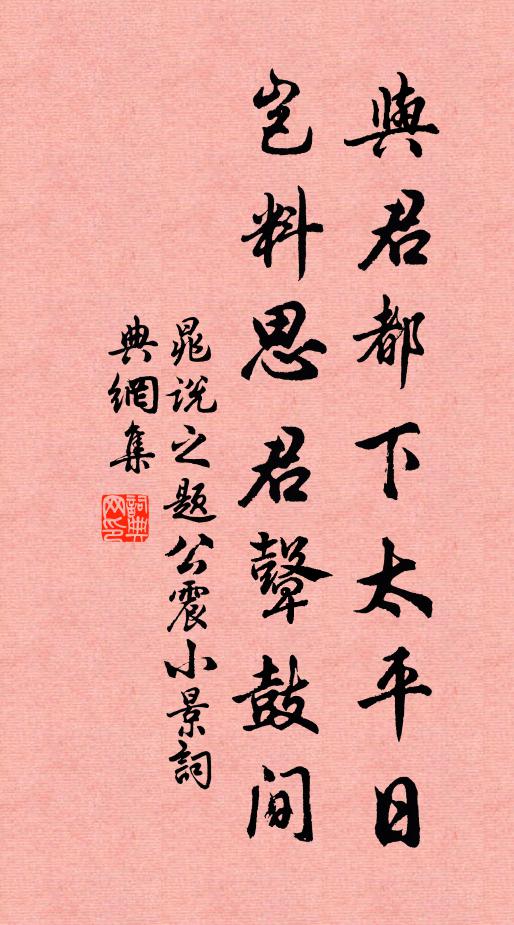 與君都下太平日
豈料思君鼙鼓間
晁說之題公震小景詞
典網集
詞典網印